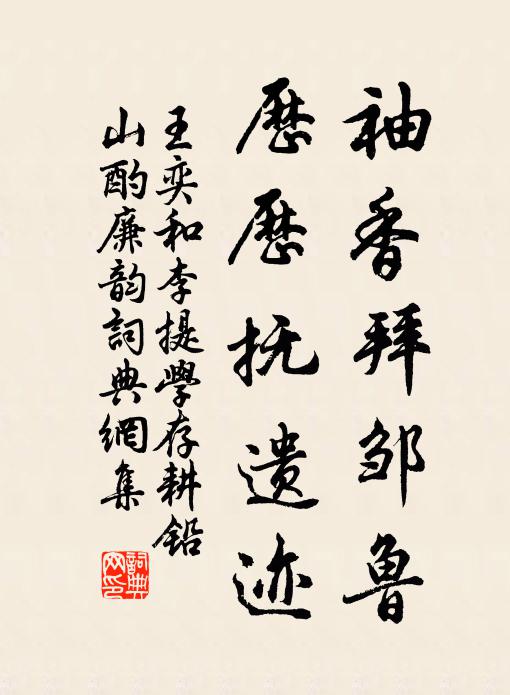 袖香拜邹鲁
历历抚遗迹
王奕和李提学存耕铅
山酌廉韵词典网集
词典网印